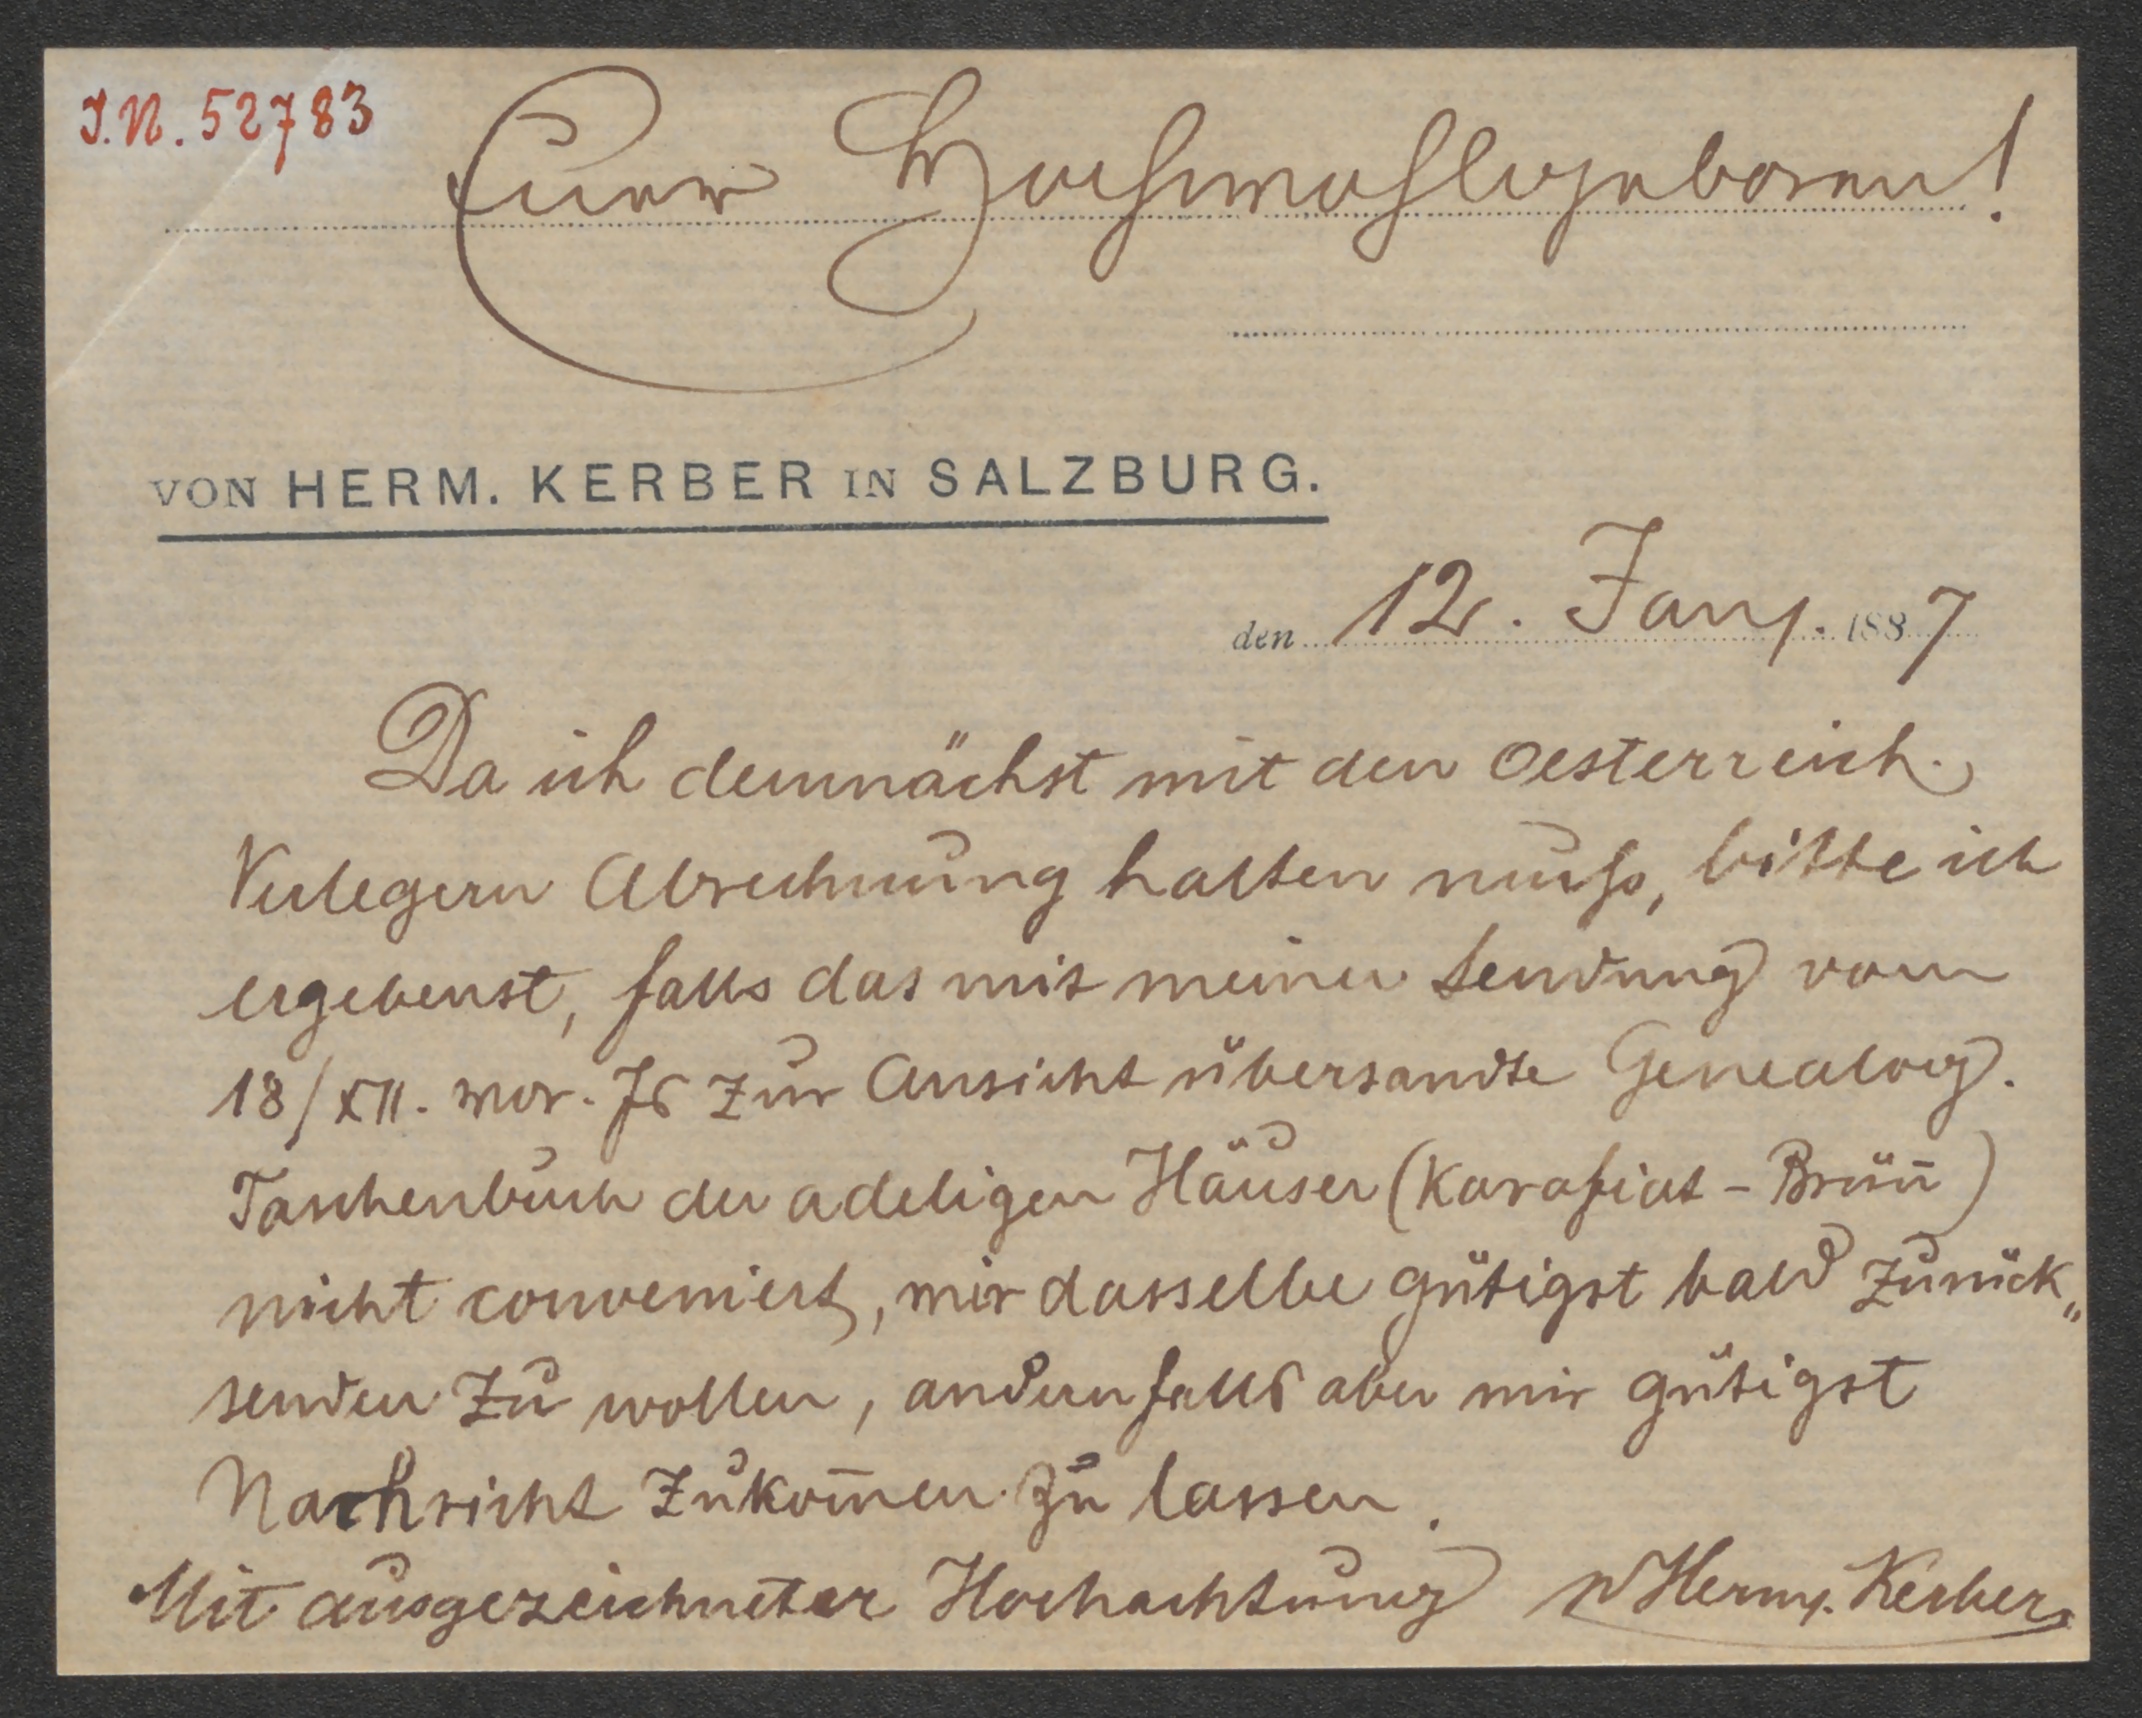 I.N. 52783
Euer Hochwohlgeboren!
VON HERM. KERBER IN SALZBURG.
den 12. Jan. 1887
Da ich demnächst mit den oesterreich.
Verlegern Abrechnung halten muß, bitte ich
ergebenst, falls das mit meiner Sendung vom
18/XII. vor. Js zur Ansicht übersandte Genealog.
Taschenbuch der adeligen Häuser (Karafiat - Brün̄)
nicht conveniert, mir dasselbe gütigst bald zurück„
senden zu wollen, andernfalls aber mir gütigst
Nachricht zukom̄en zu lassen.
Mit ausgezeichneter Hochachtung Herm. Kerber